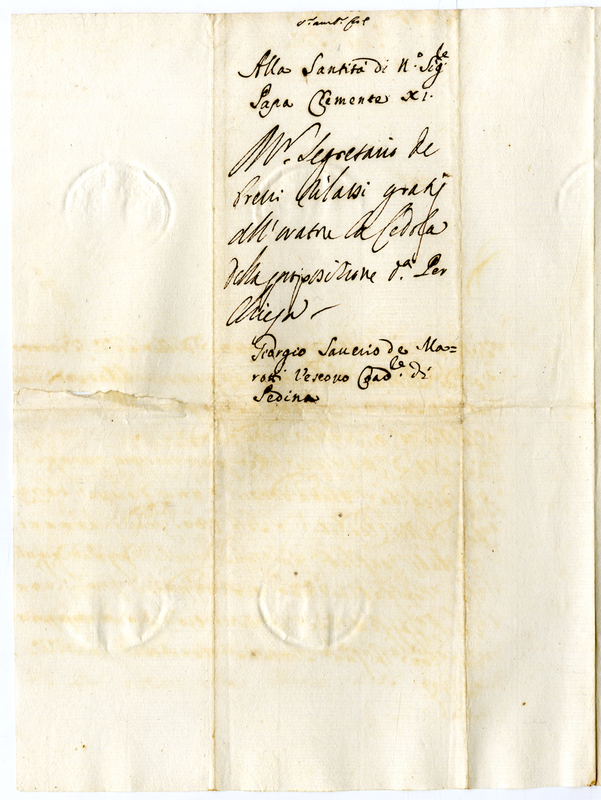 Alla Santità di N.º Sig.re
Papa Clemente XI.
M.r Segretario de
Brevi rilassi gratis
all'oratore la Cedola
della composizione d.a Per
Chiesa
Giorgio Saverio de Ma=
rotti Vescovo Coad.le di
Pedina